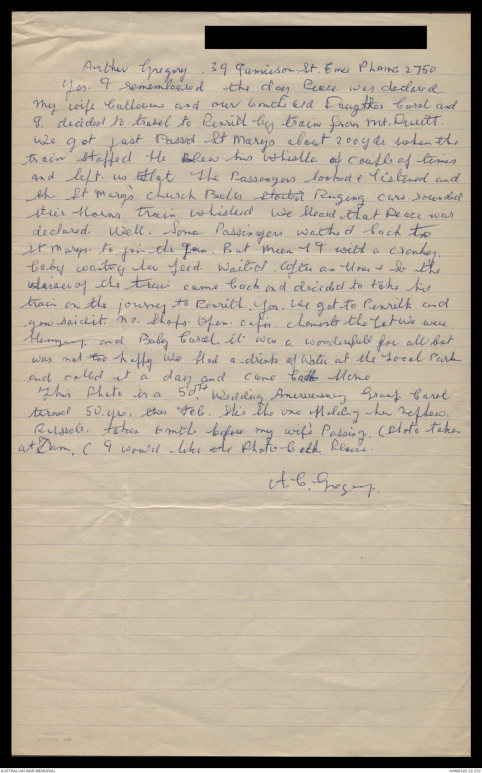 Arthur Gregory. 39 Jamieson St. Emu PLAINS 2750
Yes. I remembered the day Peace was declared
my wife Catherine and our 6mths old Daughter Carol and
I. decided to travel to Penrith by train from Mt. Druitt.
We got just Passed St Marys about 200yds when the
train stopped He Blew his whistle a couple of times
and left us that The Passengers looked & listened and
the St Mary's Church Bells started Ringing cars sounded
their Horns train whistled We Heard that Peace was
declared. Well. Some Passengers walked back to
St Marys. to join the fun. But Mean I with a cranky
baby wanting her feed. Waited. After an Hour & So the
driver of the train came back and decided to take his
train on the journey to Penrith. Yes. We got to Penrith and
you said it. no. Shops. Open. cafes. chemists the lot We were
Hungry. and Baby Carol. it was a wonderfull for all but
was not too happy. We Had a drink of Water at the Local Park
and called it a day and came back Home
This Photo is a 50th Wedding Anerversery Group Carol
turned 50. yrs. Feb. She's the one Holding her nephew.
Russell. taken 6mths before my wife's Passing. (Photo taken
at Dam. ( I would like the Photo Back Please.
A. C. Gregory.
AUSTRALIAN WAR MEMORIAL